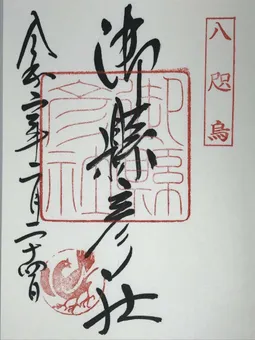 八咫烏
御縣彦社
御縣
彦社
令和二年二月二十四日